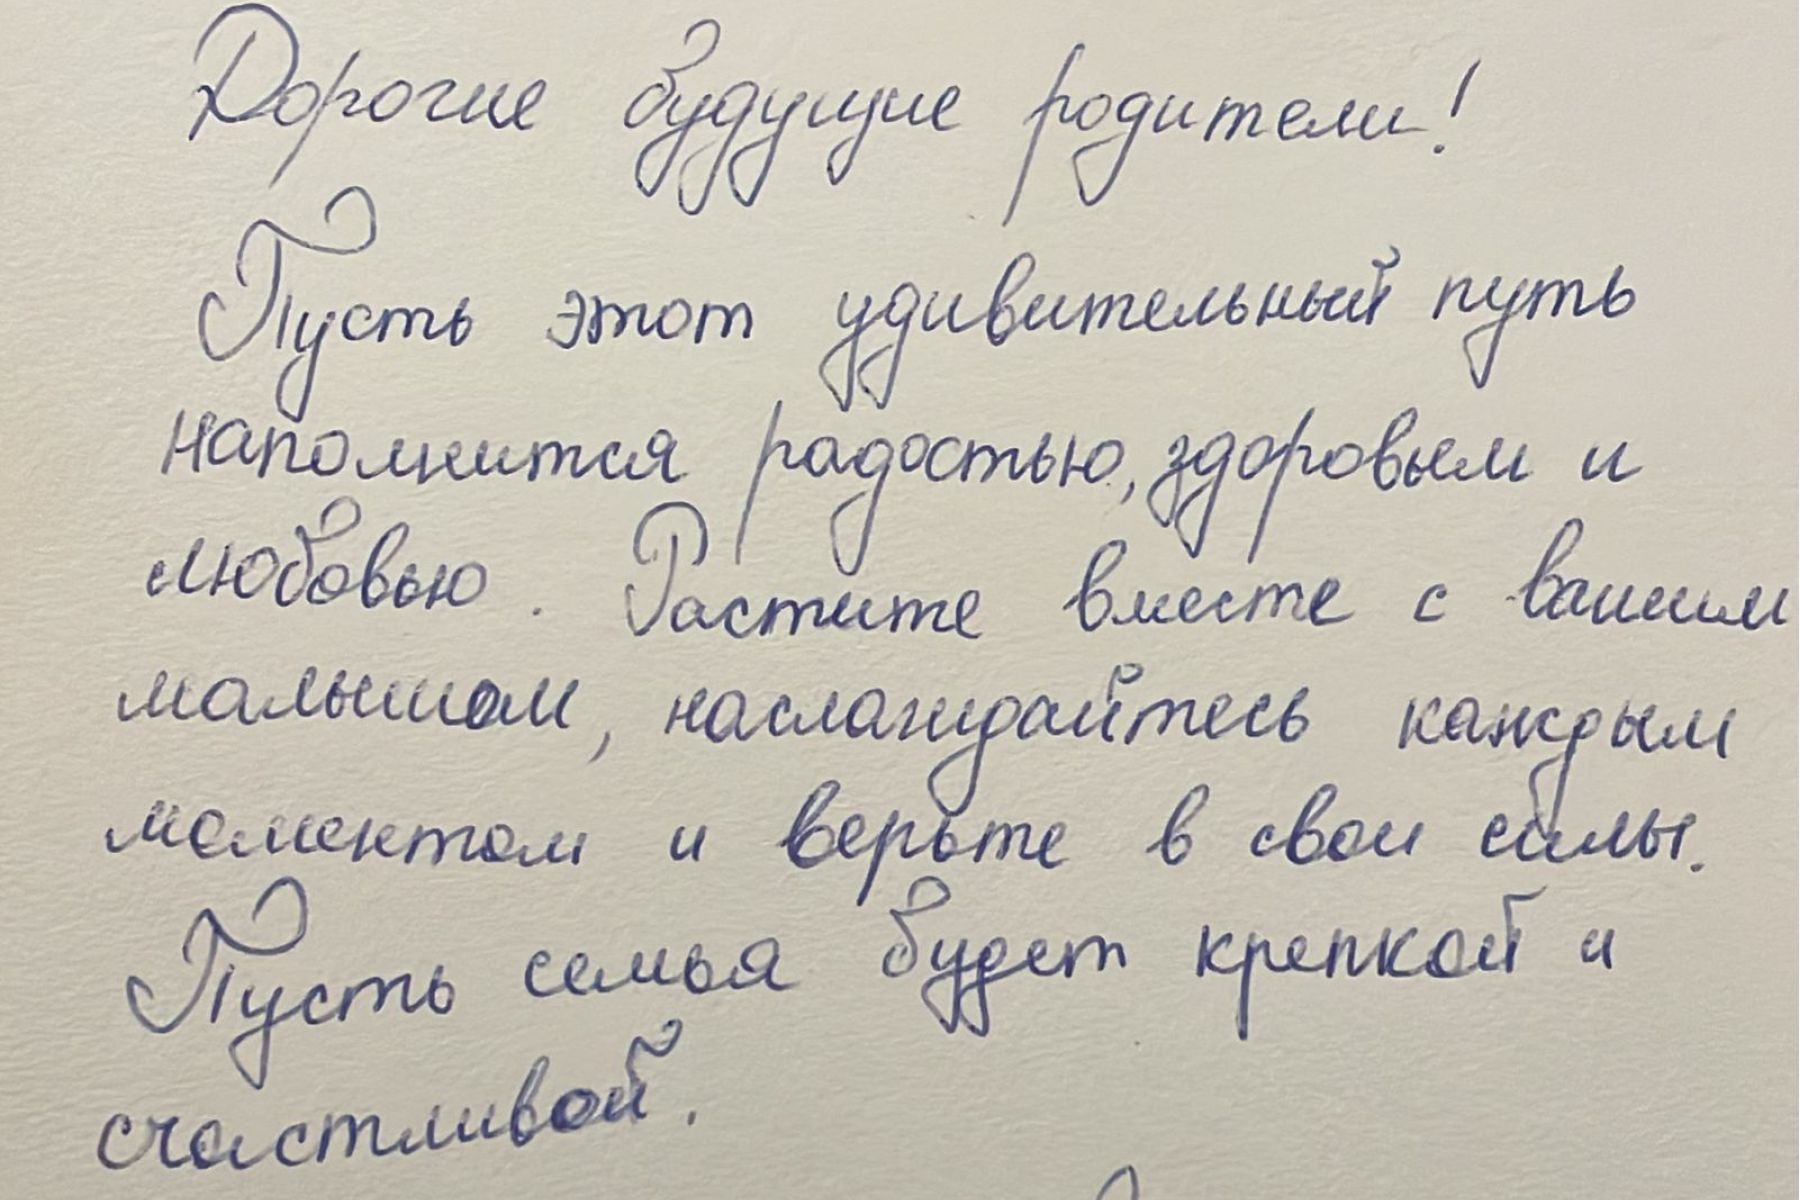 Дорогие будущие родители!
Пусть этот удивительный путь
наполнится радостью, здоровьем и
любовью. Растите вместе с вашим
малышом, наслаждайтесь каждым
моментом и верьте в свои силы.
Пусть семья будет крепкой и
счастливой.